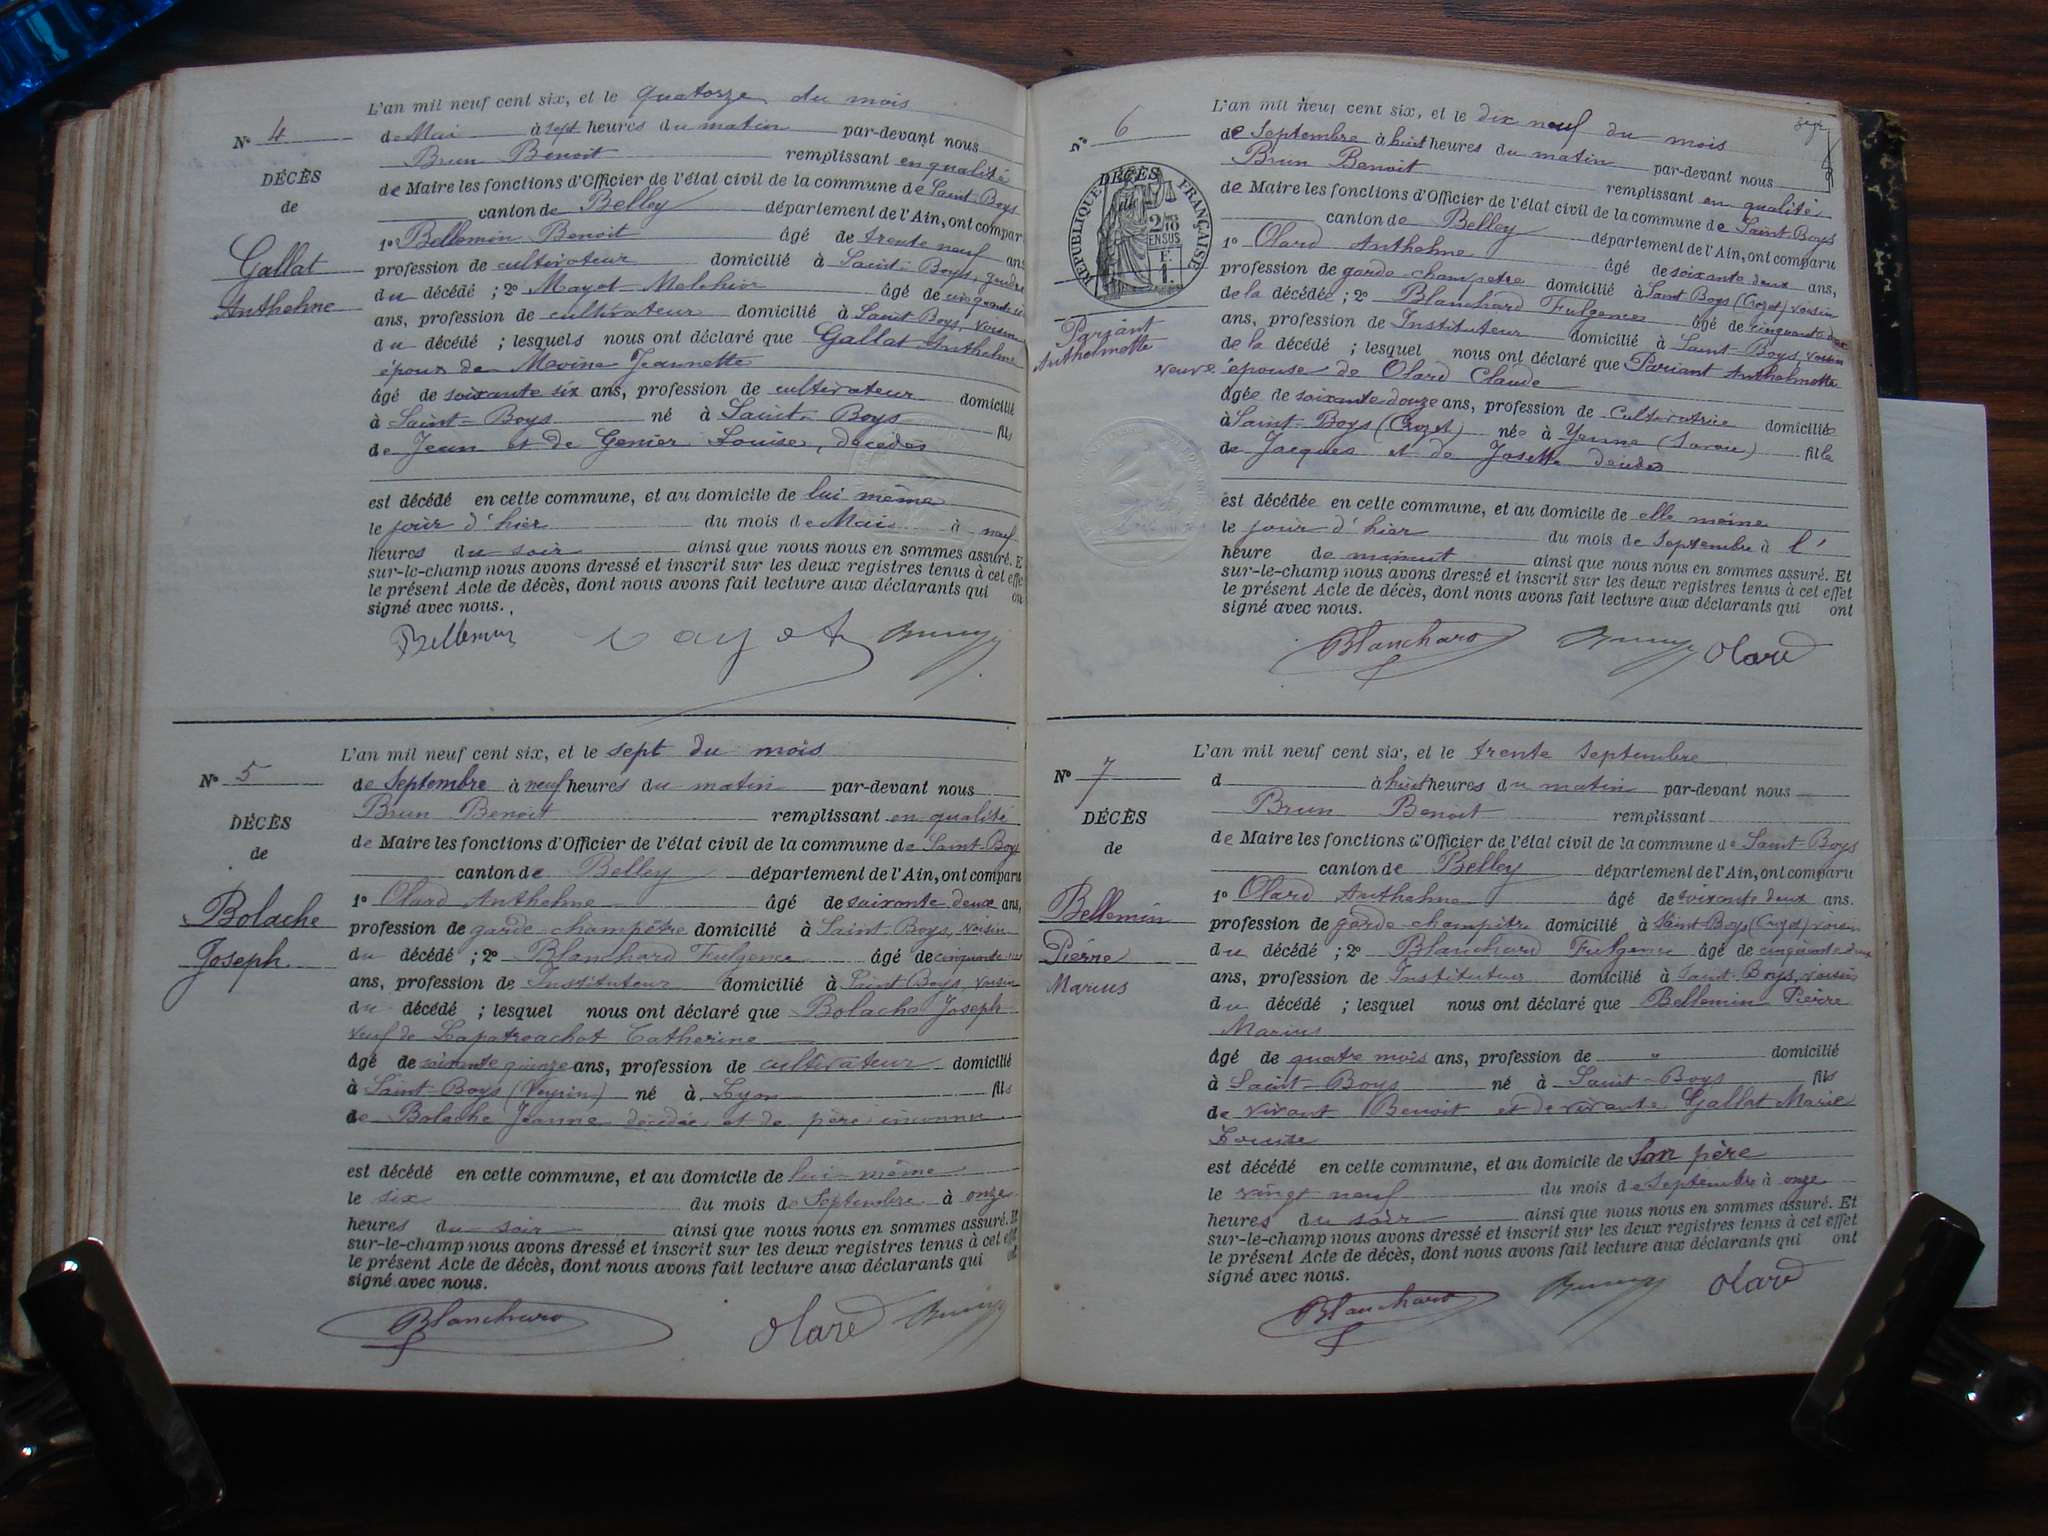 L'an mil neuf cent six, et le quatorze du mois
N° 4
de Mai à sept heures du matin par-devant nous
Brun Benoit remplissant en qualité
DÉCÈS
de Maire les fonctions d'Officier de l'état civil de la commune de Saint-Boys
de
canton de Belley département de l'Ain, ont compar
1° Bellemin Benoit âgé de trente neuf ans
Gallat
profession de cultivateur domicilié à Saint-Boys, gendre
du décédé ; 2° Mayot Melchior âgé de cinquante
Anthelme
ans, profession de cultivateur domicilié à Saint Boys, voisin
du décédé ; lesquels nous ont déclaré que Gallat Anthelme
époux de Moine Jeannette
âgé de soixante six ans, profession de cultivateur domicilié
à Saint-Boys né à Saint-Boys fils
de Jean et de Genier Louise, décédés
est décédé en cette commune, et au domicile de lui même
le jour d'hier du mois de Mai à neuf
heures du soir ainsi que nous nous en sommes assuré. E
sur-le-champ nous avons dressé et inscrit sur les deux registres tenus à cet effe
le présent Acte de décès, dont nous avons fait lecture aux déclarants qui on
signé avec nous.
Bellemin Mayot Brun
L'an mil neuf cent six, et le sept du mois
N° 5
de Septembre à neuf heures du matin par-devant nous
Brun Benoit remplissant en qualité
DÉCÈS
de Maire les fonctions d'Officier de l'état civil de la commune de Saint-Boys
de
canton de Belley département de l'Ain, ont comparu
1° Olard Anthelme âgé de soixante deux ans,
Bolache
profession de garde champêtre domicilié à Saint-Boys, voisin
Joseph
du décédé ; 2° Blanchard Fulgence âgé de cinquante
ans, profession de Instituteur domicilié à Saint Boys, voisin
du décédé ; lesquel nous ont déclaré que Bolache Joseph
veuf de Lapatreachot Catherine
âgé de soixante quinze ans, profession de cultivateur domicilié
à Saint-Boys (Veyrin) né à Lyon fils
de Bolache Jeanne décédée et de père inconnu
est décédé en cette commune, et au domicile de lui-même
le six du mois de Septembre à onze
heures du soir ainsi que nous nous en sommes assuré. Et
sur-le-champ nous avons dressé et inscrit sur les deux registres tenus à cet effet
le présent Acte de décès, dont nous avons fait lecture aux déclarants qui ont
signé avec nous.
Blanchard Olard Brun
L'an mil neuf cent six, et le dix neuf du mois
N° 6
de Septembre à huit heures du matin par-devant nous
Brun Benoit remplissant en qualité
DÉCÈS
de
RÉPUBLIQUE FRANÇAISE
2/10 EN SUS
de Maire les fonctions d'Officier de l'état civil de la commune de Saint-Boys
canton de Belley département de l'Ain, ont comparu
1° Olard Anthelme âgé de soixante deux ans,
profession de garde-champetre domicilié à Saint Boys (Crozet) voisin
de la décédée ; 2° Blanchard Fulgence âgé de cinquante deux
Pariant
Anthelmette
ans, profession de Instituteur domicilié à Saint-Boys, voisin
de la décédé ; lesquel nous ont déclaré que Pariant Anthelmette
veuve épouse de Olard Claude
âgée de soixante douze ans, profession de Cultivatrice domiciliée
à Saint-Boys (Crozet) née à Yenne (Savoie) fille
de Jacques et de Josette décédés
est décédée en cette commune, et au domicile de elle même
le jour d'hier du mois de Septembre à l'
heure de minuit ainsi que nous nous en sommes assuré. Et
sur-le-champ nous avons dressé et inscrit sur les deux registres tenus à cet effet
le présent Acte de décès, dont nous avons fait lecture aux déclarants qui ont
signé avec nous.
Blanchard Brun Olard
L'an mil neuf cent six, et le trente Septembre
N° 7
d à huit heures du matin par-devant nous
Brun Benoit remplissant
DÉCÈS
de Maire les fonctions d'Officier de l'état civil de la commune de Saint-Boys
de
canton de Belley département de l'Ain, ont comparu
1° Olard Anthelme âgé de soixante deux ans.
Bellemin
profession de garde champêtre domicilié à Saint-Boys (Crozet) voisin
Pierre
du décédé ; 2° Blanchard Fulgence âgé de cinquante deux
Marius
ans, profession de Instituteur domicilié à Saint-Boys, voisin
du décédé ; lesquel nous ont déclaré que Bellemin Pierre
Marius
âgé de quatre mois ans, profession de " domicilié
à Saint-Boys né à Saint-Boys fils
de vivant Benoit et de vivante Gallat Marie
Louise
est décédé en cette commune, et au domicile de Son père
le vingt neuf du mois de Septembre à onze
heures du soir ainsi que nous nous en sommes assuré. Et
sur-le-champ nous avons dressé et inscrit sur les deux registres tenus à cet effet
le présent Acte de décès, dont nous avons fait lecture aux déclarants qui ont
signé avec nous.
Blanchard Brun Olard